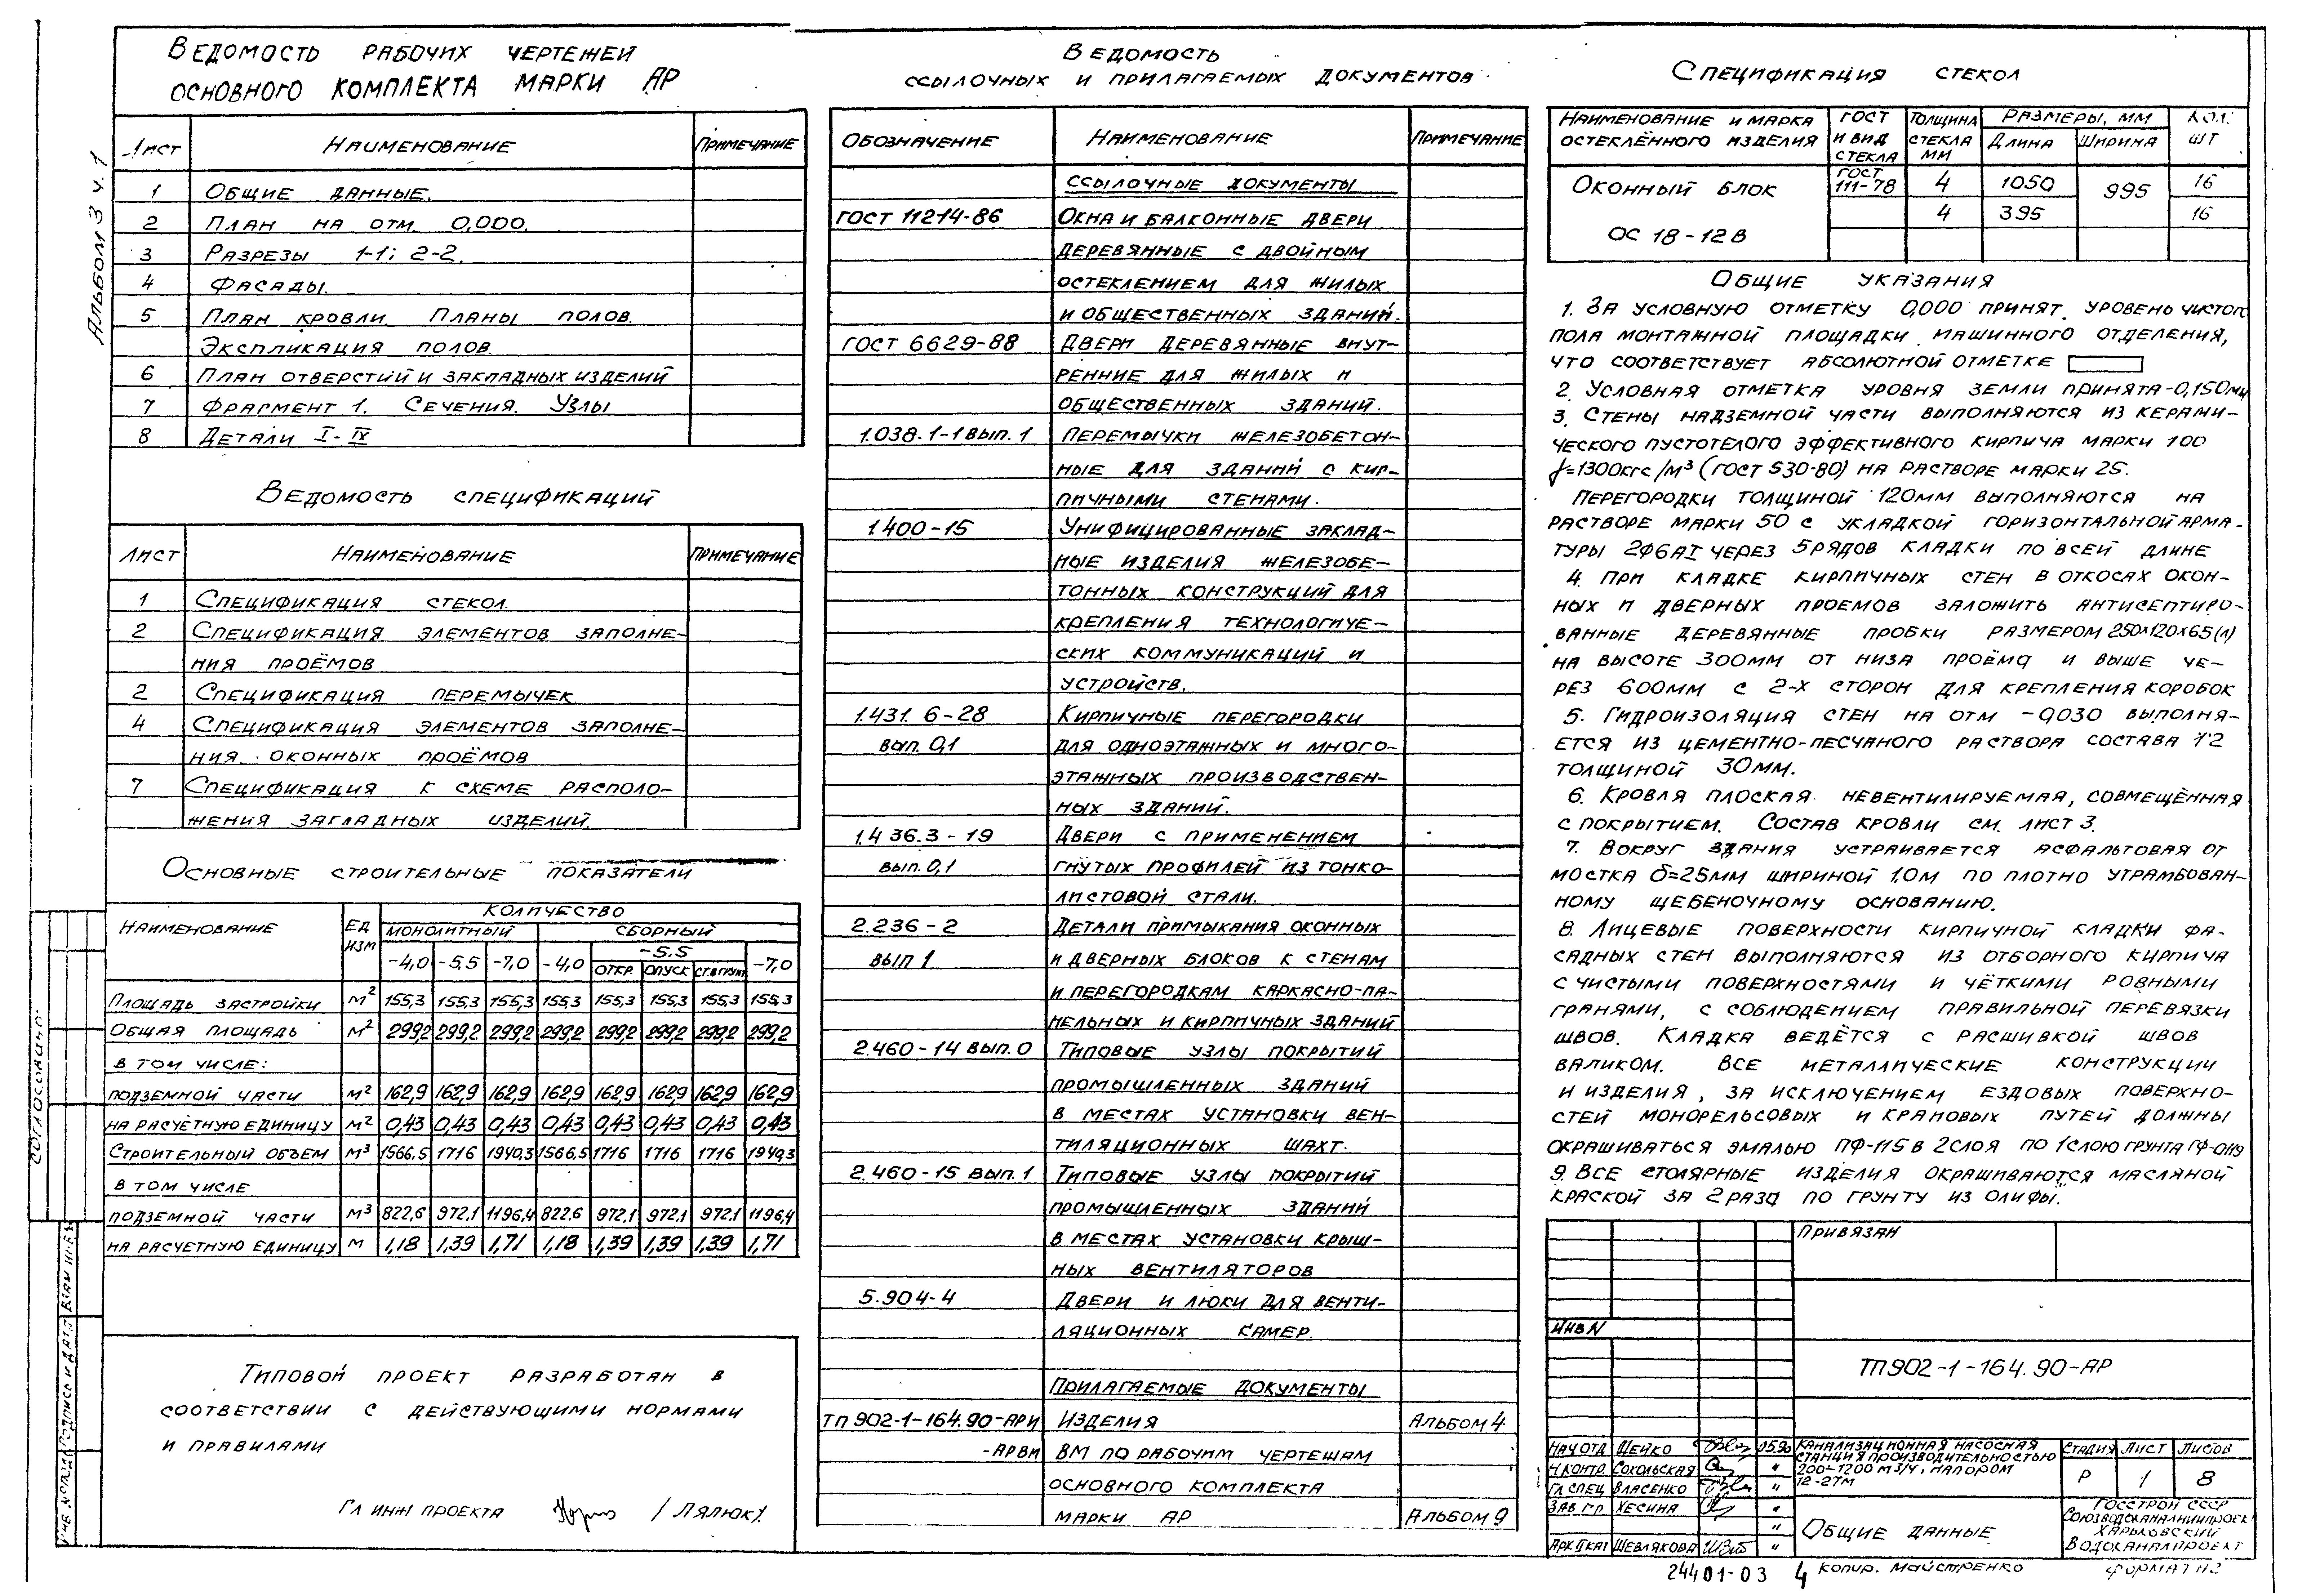 Альбом 3 ч.1
Ведомость рабочих чертежей
основного комплекта марки АР
Лист Наименование Примечание
1 Общие данные.
2 План на отм. 0,000.
3 Разрезы 1-1; 2-2.
4 Фасады.
5 План кровли. Планы полов.
Экспликация полов.
6 План отверстий и закладных изделий
7 Фрагмент 1. Сечения. Узлы
8 Детали I-IX
Ведомость спецификаций
Лист Наименование Примечание
1 Спецификация стекол.
2 Спецификация элементов заполне-
ния проёмов
2 Спецификация перемычек
4 Спецификация элементов заполне-
ния оконных проёмов
7 Спецификация к схеме располо-
жения загладных изделий.
Основные строительные показатели
Наименование Ед изм Количество
монолитный сборный
-4,0 -5.5 -7,0 -4,0 -5.5 -7,0
откр. опуск ст.в грунт
Площадь застройки м2 155,3 155,3 155,3 155,3 155,3 155,3 155,3 155,3
Общая площадь м2 299,2 299,2 299,2 299,2 299,2 299,2 299,2 299,2
в том числе:
подземной части м2 162,9 162,9 162,9 162,9 162,9 162,9 162,9 162,9
на расчётную единицу м2 0,43 0,43 0,43 0,43 0,43 0,43 0,43 0,43
Строительный объем м3 1566,5 1716 1940,3 1566,5 1716 1716 1716 1940,3
в том числе
подземной части м3 822,6 972,1 1196,4 822,6 972,1 972,1 972,1 1196,4
на расчетную единицу м 1,18 1,39 1,71 1,18 1,39 1,39 1,39 1,71
Типовой проект разработан в
соответствии с действующими нормами
и правилами
Гл инж проекта /Лялюк/
Согласовано:
Инв. N подл Подпись и дата Взам инв. N
Ведомость
ссылочных и прилагаемых документов
Обозначение Наименование Примечание
Ссылочные документы
ГОСТ 11214-86 Окна и балконные двери
деревянные с двойным
остеклением для жилых
и общественных зданий.
ГОСТ 6629-88 Двери деревянные внут-
ренние для жилых и
общественных зданий.
1.038.1-1 вып. 1 Перемычки железобетон-
ные для зданий с кир-
пичными стенами.
1.400-15 Унифицированные заклад-
ные изделия железобе-
тонных конструкций для
крепления технологиче-
ских коммуникаций и
устройств.
1.431.6-28 Кирпичные перегородки
вып. 0,1 для одноэтажных и много-
этажных производствен-
ных зданий.
1.436.3-19 Двери с применением
вып. 0,1 гнутых профилей из тонко-
листовой стали.
2.236-2 Детали примыкания оконных
вып 1 и дверных блоков к стенам
и перегородкам каркасно-па-
нельных и кирпичных зданий
2.460-14 вып. 0 Типовые узлы покрытий
промышленных зданий
в местах установки вен-
тиляционных шахт.
2.460-15 вып. 1 Типовые узлы покрытий
промышленных зданий
в местах установки крыш-
ных вентиляторов
5.904-4 Двери и люки для венти-
ляционных камер.
Прилагаемые документы
ТП 902-1-164.90-АРИ Изделия Альбом 4
-АРВМ ВМ по рабочим чертежам
основного комплекта
марки АР Альбом 9
Спецификация стекол
Наименование и марка остеклённого изделия ГОСТ и вид стекла Толщина стекла мм Размеры, мм Кол. шт
Длина Ширина
Оконный блок ГОСТ 111-78 4 1050 995 16
4 395 16
ОС 18-12В
Общие указания
1. За условную отметку 0,000 принят уровень чистого
пола монтажной площадки машинного отделения,
что соответствует абсолютной отметке
2. Условная отметка уровня земли принята -0,150мм
3. Стены надземной части выполняются из керами-
ческого пустотелого эффективного кирпича марки 100
γ=1300кгс/м3 (ГОСТ 530-80) на растворе марки 25.
Перегородки толщиной 120мм выполняются на
растворе марки 50 с укладкой горизонтальной арма-
туры 2ф6АI через 5 рядов кладки по всей длине
4. При кладке кирпичных стен в откосах окон-
ных и дверных проемов заложить антисептиро-
ванные деревянные пробки размером 250х120х65(h)
на высоте 300мм от низа проёма и выше че-
рез 600мм с 2-х сторон для крепления коробок
5. Гидроизоляция стен на отм -0,030 выполня-
ется из цементно-песчаного раствора состава 1:2
толщиной 30мм.
6. Кровля плоская невентилируемая, совмещённая
с покрытием. Состав кровли см. лист 3.
7. Вокруг здания устраивается асфальтовая от
мостка δ=25мм шириной 1,0м по плотно утрамбован-
ному щебеночному основанию.
8. Лицевые поверхности кирпичной кладки фа-
садных стен выполняются из отборного кирпича
с чистыми поверхностями и чёткими ровными
гранями, с соблюдением правильной перевязки
швов. Кладка ведётся с расшивкой швов
валиком. Все металлические конструкции
и изделия, за исключением ездовых поверхно-
стей монорельсовых и крановых путей должны
окрашиваться эмалью ПФ-115 в 2 слоя по 1 слою грунта ГФ-0119
9. Все столярные изделия окрашиваются масляной
краской за 2 раза по грунту из олифы.
Привязан
Инв N
ТП902-1-164.90-АР
Нач отд Шейко 05.90
Н контр. Сокольская "
Гл спец Власенко "
Зав. гр Хесина "
"
Арх Iкат Шевлякова "
Канализационная насосная
станция производительностью
200-1200 м3/ч, напором
12-27м
Стадия Лист Листов
Р 1 8
Общие данные
Госстрой СССР
Союзводоканалниипроект
Харьковский
Водоканалпроект
24401-03 4 Копир. Майстренко Формат А2